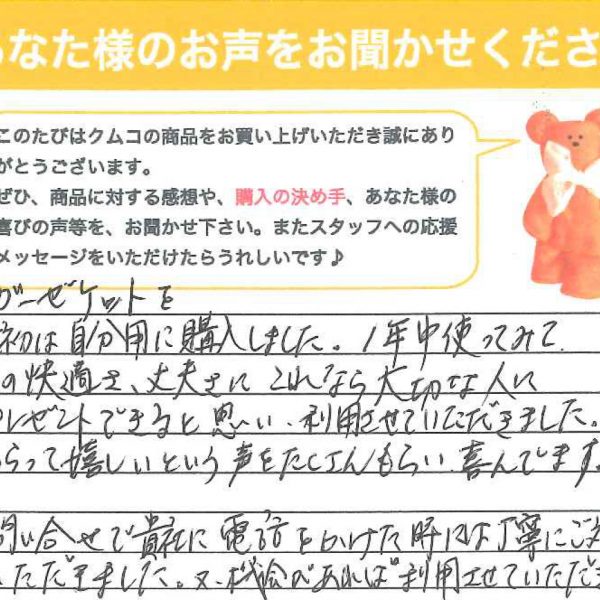 あなた様のお声をお聞かせくださ
このたびはクムコの商品をお買い上げいただき誠にあり
がとうございます。
ぜひ、商品に対する感想や、購入の決め手、あなた様の
喜びの声等を、お聞かせ下さい。またスタッフへの応援
メッセージをいただけたらうれしいです♪
ガーゼケットを
初は自分用に購入しました。1年中使ってみて、
の快適さ、丈夫さにこれなら大切な人に
プレゼントできると思い、利用させていただきました。
らって嬉しいという声をたくさんもらい喜んでます。
問い合せで貴社に電話をかけた時には丁寧にご対
いただきました。又、機会があれば利用させていただき